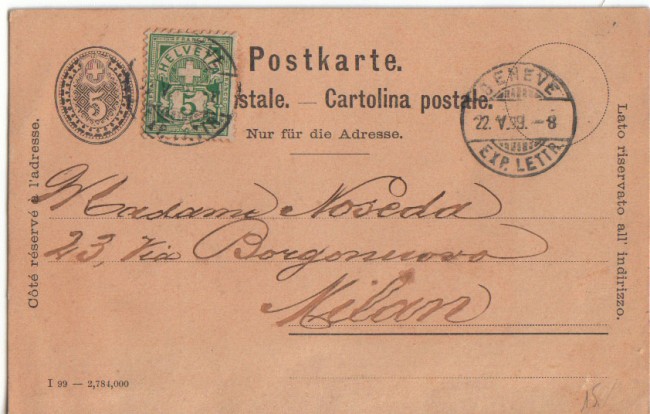 5
HELVETIA
5
Postkarte.
stale. — Cartolina postale.
Nur für die Adresse.
GENÈVE
22. V. 99. – 8
EXP. LETTR.
Côté réservé à l'adresse.
Lato riservato all' indirizzo.
Madame Noseda
23, Via Borgonuovo
Milan
I 99 — 2,784,000
15